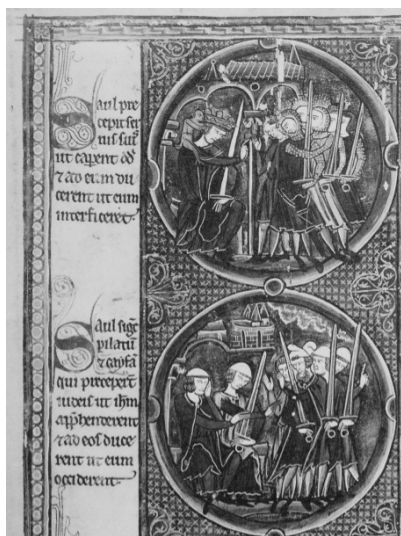 Saul pre
cepit ser
uis suis
ut caperent dd
⁊ ad eum du
cerent ut eum
interficeret.
Saul sig̅t
pilatu̅
⁊ caypha̅
qui precepert̅
iudeis ut ih̅m
app̅henderent
⁊ ad eos duce
rent ut eum
occiderent.